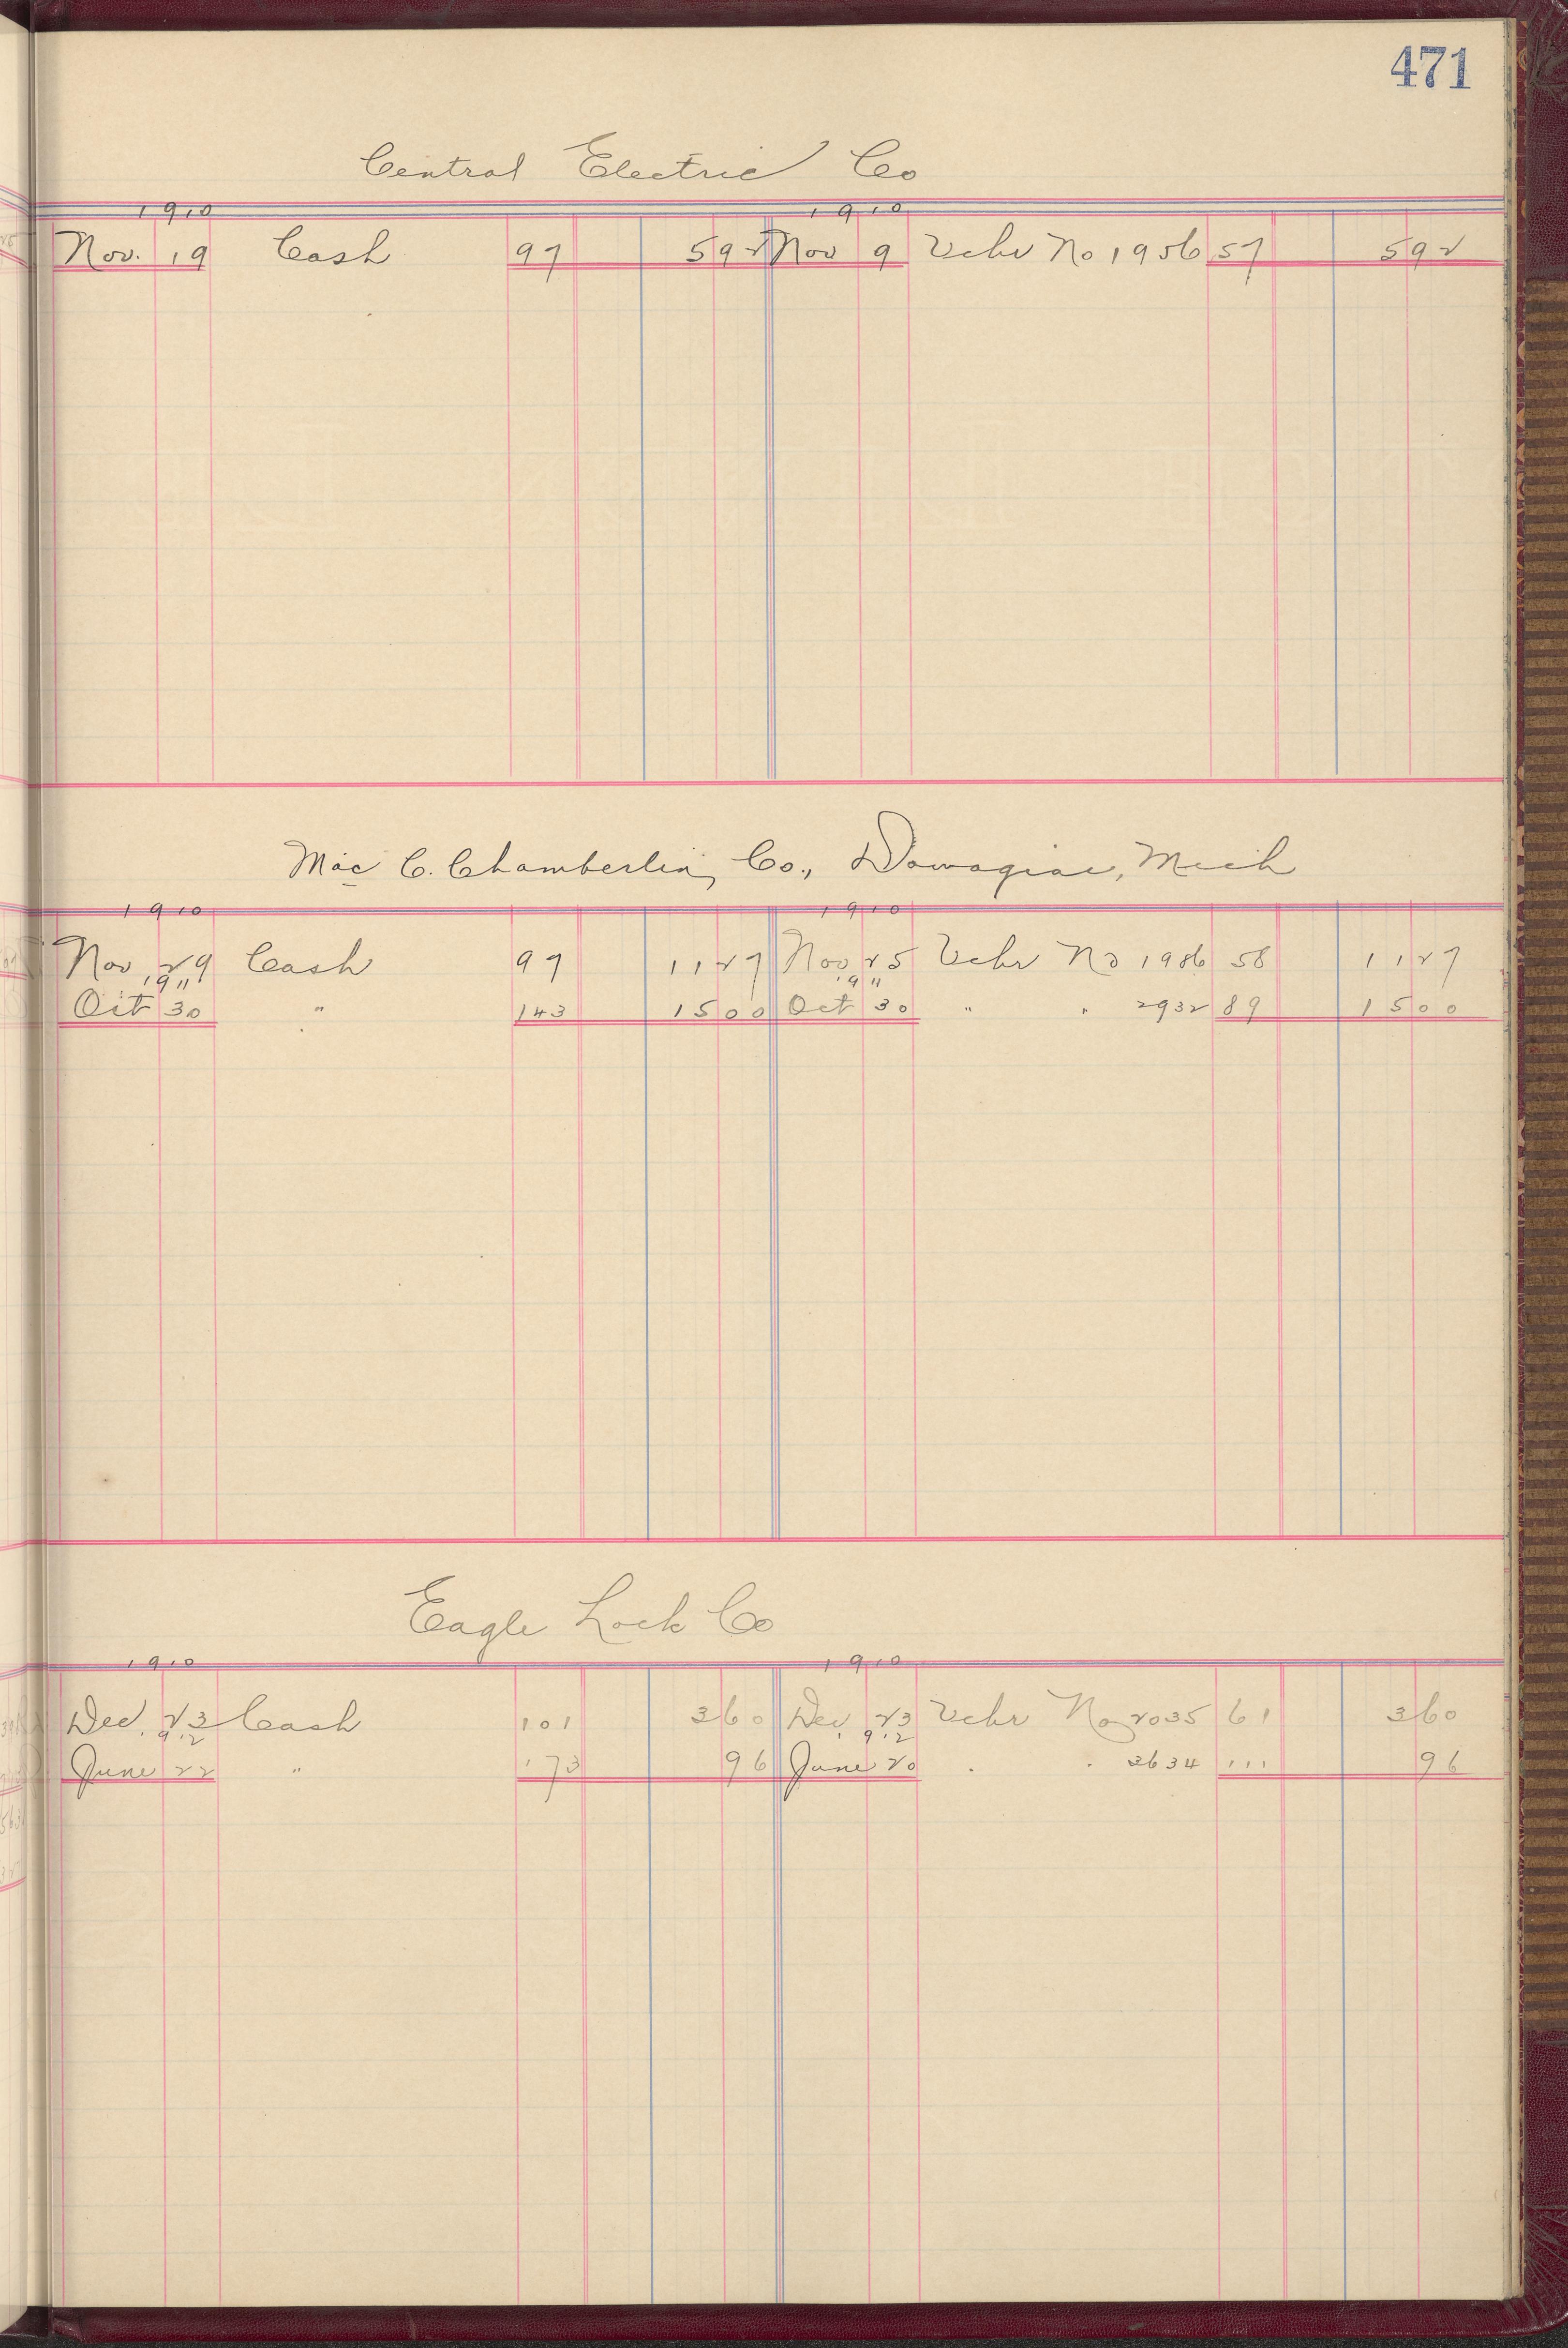 471
Central Electric Co
1910 1910
Nov. 19 Cash 97 592 Nov 9 Vchr No 1956 57 592
Mac C. Chamberlin, Co., Dowagiac, Mich
1910 1910
Nov 29 Cash 97 1127 Nov 25 Vchr No 1986 58 1127
1911 1911
Oct 30 " 143 1500 Oct 30 " " 2932 89 1500
Eagle Lock Co
1910 1910
Dec. 23 Cash 101 360 Dec 23 Vchr No 2035 61 360
1912 1912
June 22 " 173 96 June 20 " " 3634 111 96